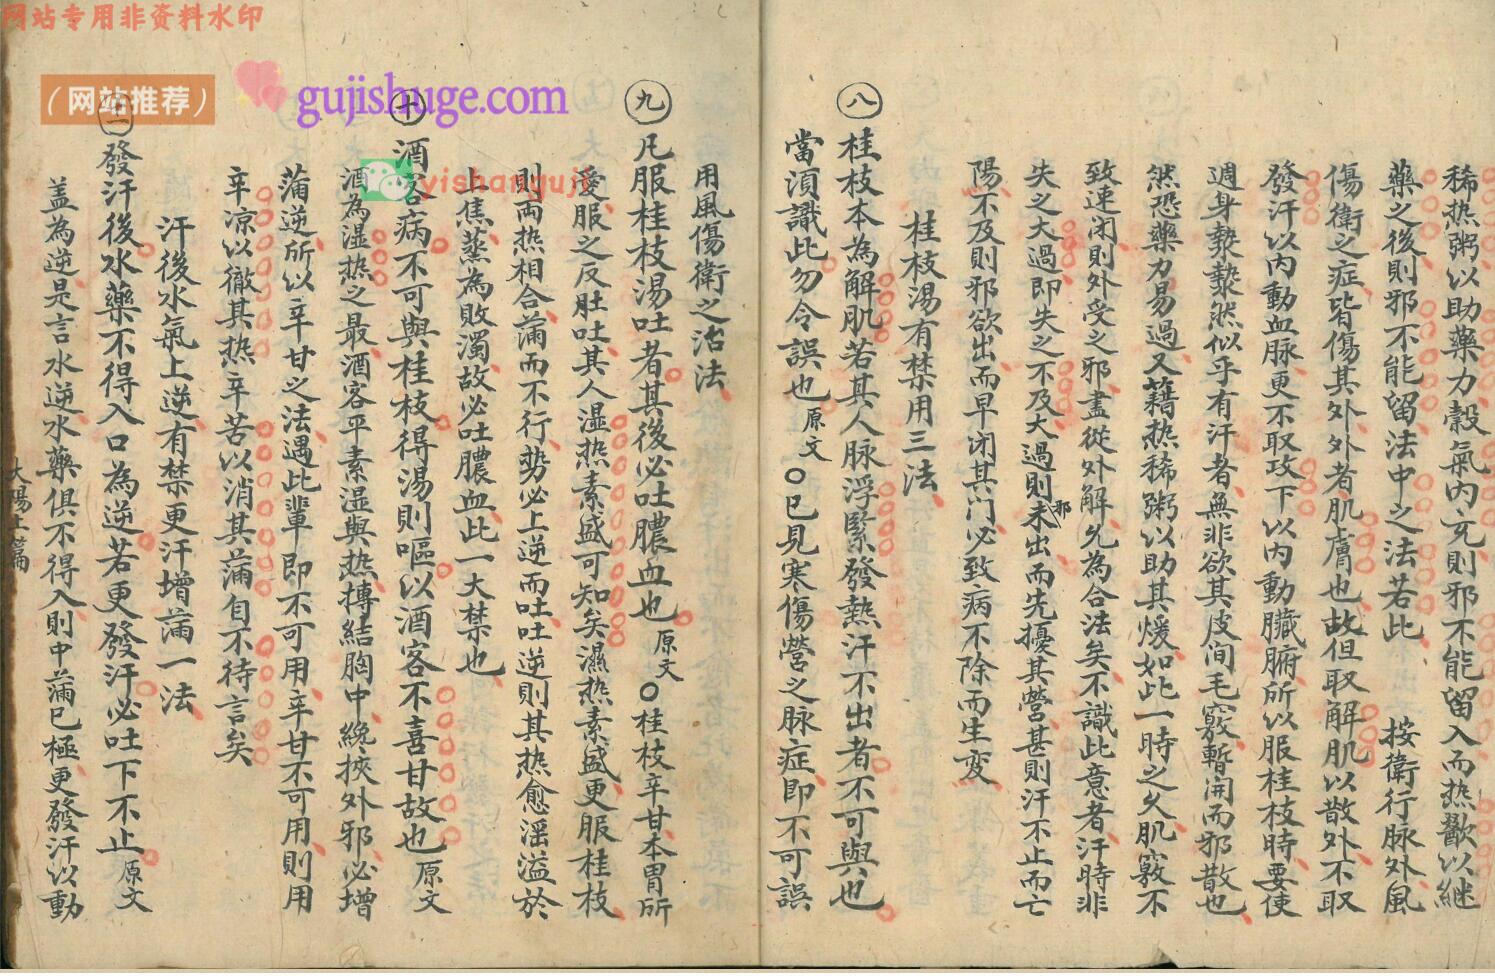 网站专用非资料水印
（网站推荐）
gujishuge.com
yishanguji
稀热粥以助藥力穀氣内充則邪不能留入而热歠以継
藥之後則邪不能留法中之法若此　按衛行脉外風
傷衛之症皆傷其外外者肌膚也故但取解肌以散外不取
發汗以内動血脉更不取攻下以内動臓腑所以服桂枝時要使
週身漐漐然似乎有汗者無非欲其皮间毛竅暫開而邪散也
然恐藥力易過又藉热稀粥以助其煖如此一時之久肌竅不
致速闭則外受之邪盡從外解允為合法矣不識此意者汗時非
失之大過即失之不及大過則邪未出而先擾其營甚則汗不止而亡
陽不及則邪欲出而早闭其门必致病不除而生変
桂枝湯有禁用三法
八 桂枝本為解肌若其人脉浮緊發熱汗不出者不可與也
當須識此勿令誤也原文○已見寒傷營之脉症即不可誤
用風傷衛之治法
九 凡服桂枝湯吐者其後必吐膿血也原文○桂枝辛甘本胃所
愛服之反吐其人湿热素盛可知矣濕热素盛更服桂枝
則両热相合滿而不行势必上逆而吐吐逆則其热愈滛溢於
上焦蒸為敗濁故必吐膿血此一大禁也
十 酒客病不可與桂枝得湯則嘔以酒客不喜甘故也原文
酒為湿热之最酒客平素湿與热摶結胸中纔挾外邪必增
滿逆所以辛甘之法遇此輩即不可用辛甘不可用則用
辛凉以徹其热辛苦以消其滿自不待言矣
汗後水氣上逆有禁更汗增滿一法
十一 發汗後水藥不得入口為逆若更發汗必吐下不止原文
盖為逆是言水逆水藥俱不得入則中滿已極更發汗以動
太陽上篇